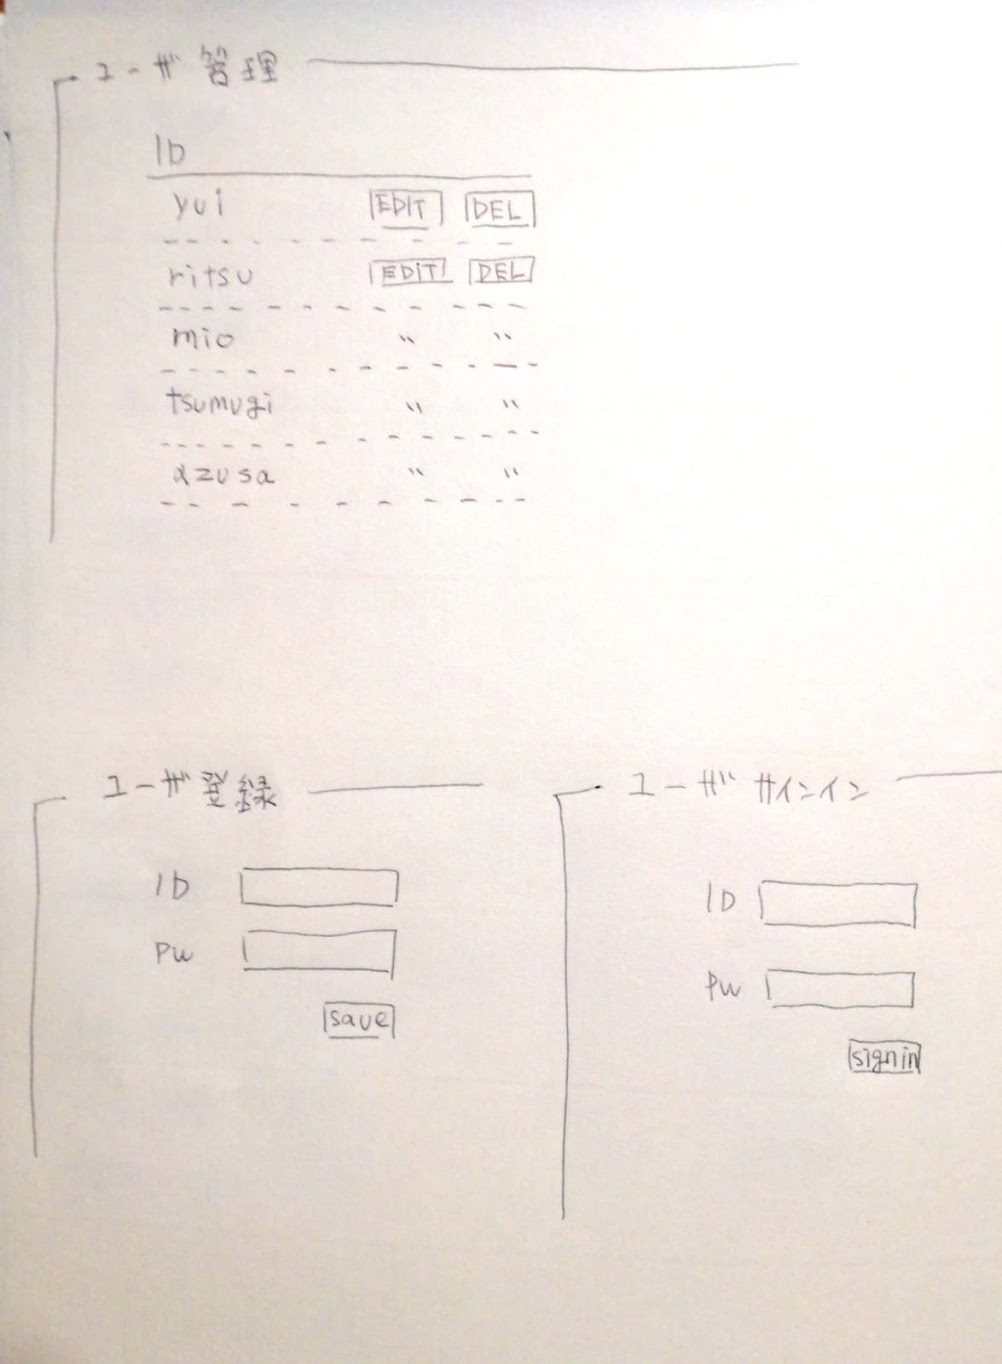 ユーザ管理
ID
yui EDIT DEL
ritsu EDIT DEL
mio 〃 〃
tsumugi 〃 〃
azusa 〃 〃
ユーザ登録
ID
PW
save
ユーザサインイン
ID
PW
signin